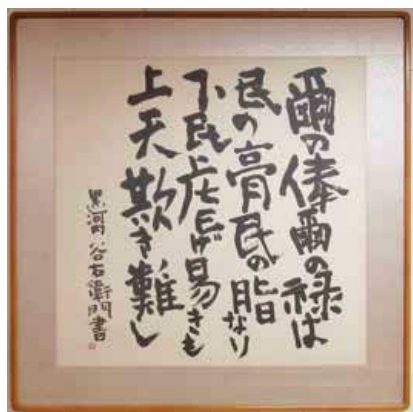 爾の俸爾の禄は
民の膏民の脂なり
下民は虐げ易きも
上天欺き難し
黒河内谷右衛門書